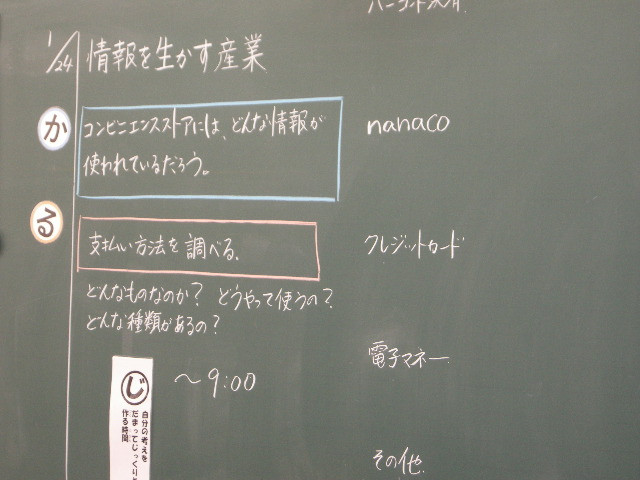 1/24
情報を生かす産業
か
コンビニエンスストアには、どんな情報が
使われているだろう。
る
支払い方法を調べる.
どんなものなのか? どうやって使うの?
どんな種類があるの?
じ
自分の考えを
だまってじっくりと
作る時間
〜9:00
nanaco
クレジットカード
電子マネー
その他